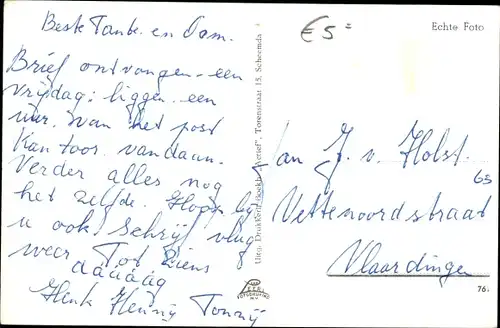 Beste Tante en Oom.
Brief ontvangen een
vrijdag: liggen een
uur van het post
Kantoor vandaan.
Verder alles nog
het zelfde. Hoop bij
u ook. Schrijf vlug
weer Tot Ziens
dáááág
Henk Henny Tonny
Torenstraat 15, Scheemda
€ 5=
Echte Foto
aan J. v. Holst.
65
Vettenoordstraat
Vlaardingen
76.